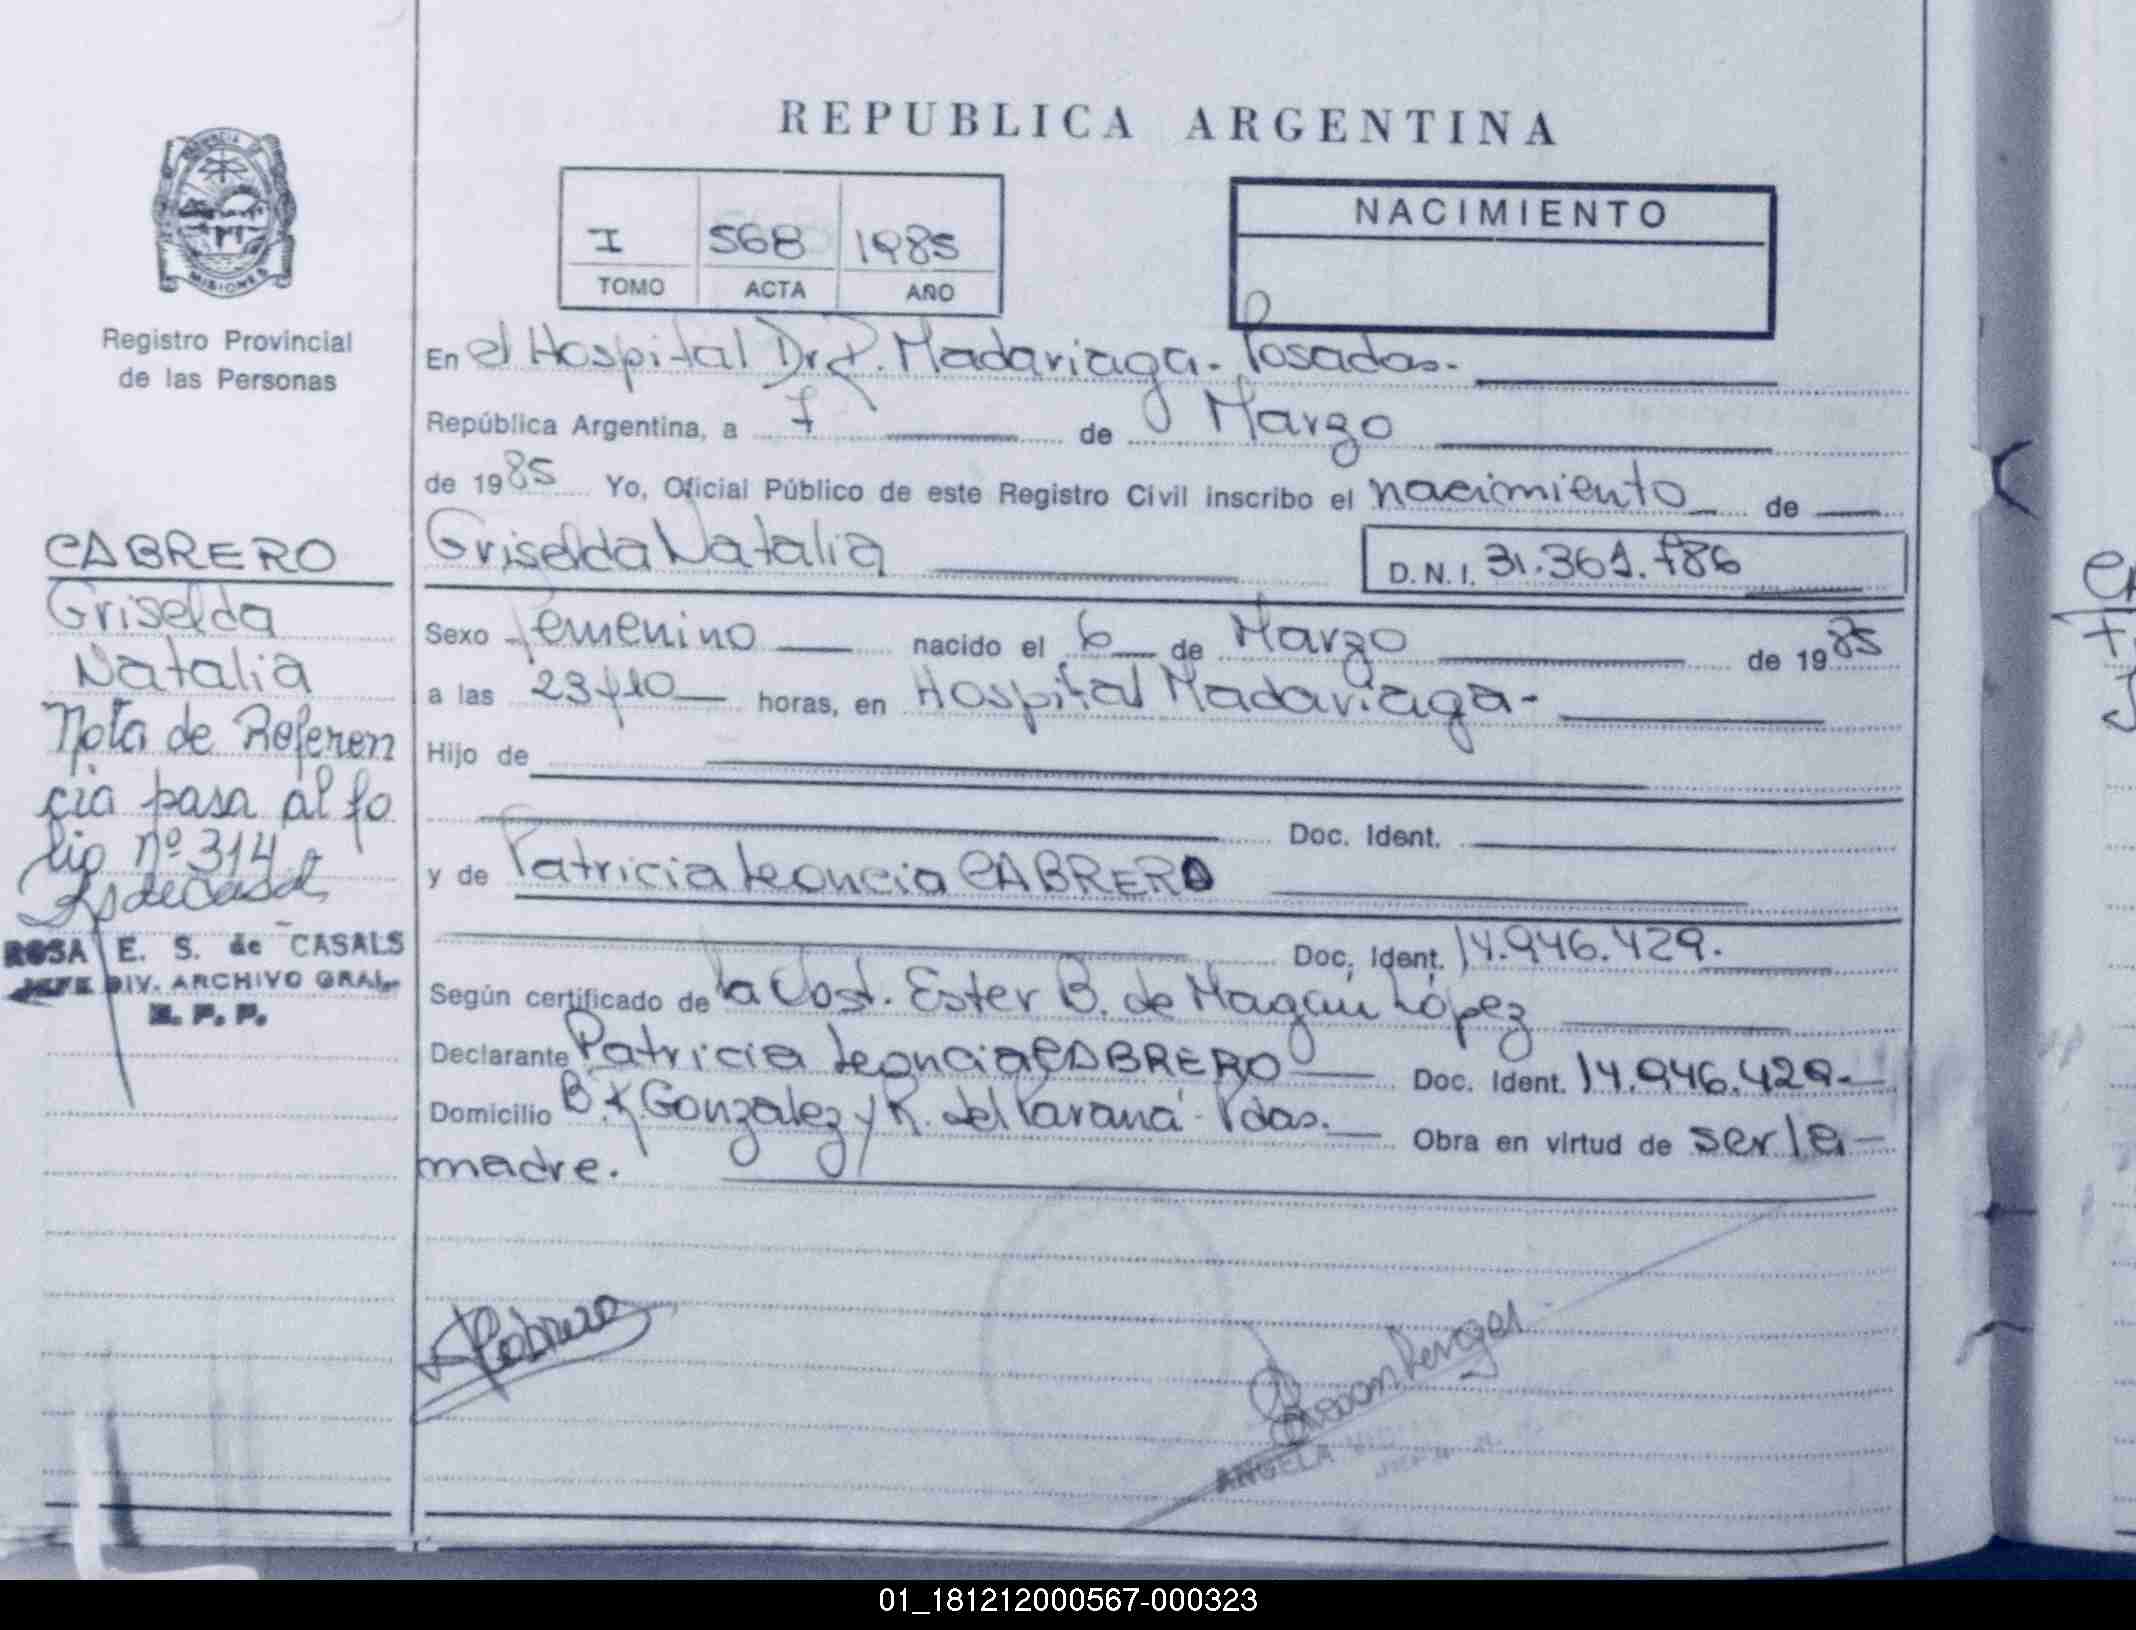 REPUBLICA ARGENTINA
PROVINCIA DE
MISIONES
Registro Provincial
de las Personas
I 568 1985
TOMO ACTA AÑO
NACIMIENTO
En el Hospital Dr. R. Madariaga. Posadas.
República Argentina, a 7 de Marzo
de 1985 Yo, Oficial Público de este Registro Civil inscribo el nacimiento de
Griselda Natalia D.N.I. 31.361.786
Sexo femenino nacido el 6 de Marzo de 1985
a las 23y10 horas, en Hospital Madariaga-
Hijo de
Doc. Ident.
y de Patricia Leoncia CABRERO
Doc. Ident. 14.946.429.
Según certificado de la Obst. Ester B. de López
Declarante Patricia Leoncia CABRERO Doc. Ident. 14.946.429-
Domicilio B. González y R. del Paraná - Pdas. Obra en virtud de ser la
madre.
CABRERO
Griselda
Natalia
Nota de Referen
cia pasa al fo
lio nº 314
ROSA E. S. de CASALS
JEFE DIV. ARCHIVO GRAL.
R. P. P.
ANGELA
01_181212000567-000323